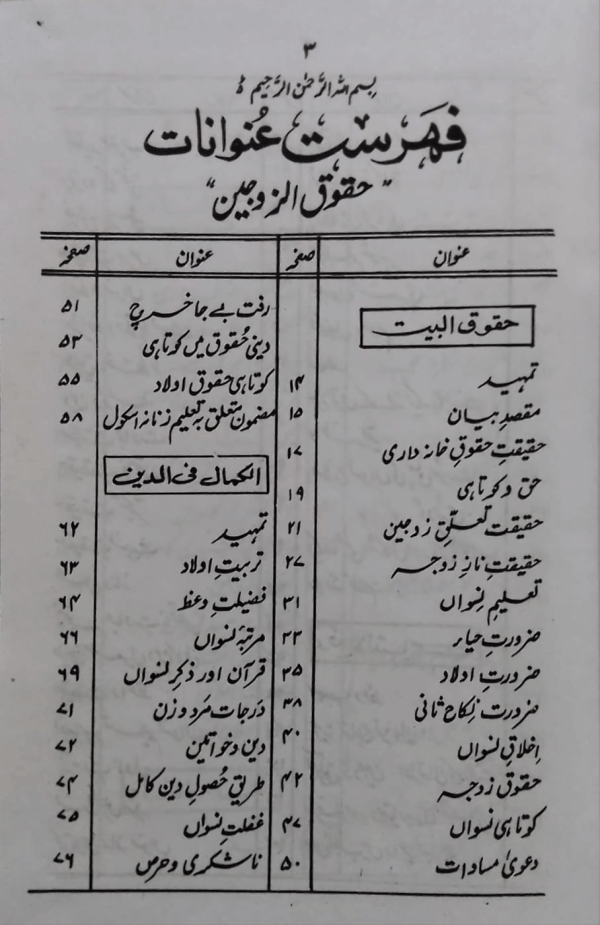 ۳
بسم اللہ الرَّحمٰن الرَّحیم ۂ
فہرست عُنوانات
"حقوق الزوجین"
عنوان صفحہ
حقوق البیت
تمہید ۱۴
مقصدِ بیان ۱۵
حقیقتِ حقوقِ خانہ داری ۱۷
حق و کوتاہی ۱۹
حقیقت تعلّقِ زوجین ۲۱
حقیقتِ نازِ زوجہ ۲۷
تعلیمِ نسواں ۳۱
ضرورتِ حیار ۳۳
ضرورتِ اولاد ۳۵
ضرورت نِکاح ثانی ۳۸
اِخلاقِ نسواں ۴۰
حقوق زوجہ ۴۲
کوتاہی نسواں ۴۷
دعویٰ مساوات ۵۰
عنوان صفحہ
رفت بے جا خرچ ۵۱
دینی حُقوق میں کوتاہی ۵۳
کوتاہی حقوق اولاد ۵۵
مضمون متعلق بہ تعلیم زنانہ اسکول ۵۸
الکمال فی الدین
تمہید ۶۲
تربیتِ اولاد ۶۳
فضیلتِ وعظ ۶۴
مرتبۂ نسواں ۶۶
قرآن اور ذکرِ نسواں ۶۹
دَرجات مَرد و زن ۷۱
دین و خواتین ۷۲
طریقِ حُصولِ دین کامل ۷۴
غفلتِ نسواں ۷۵
ناشکری و حرص ۷۶